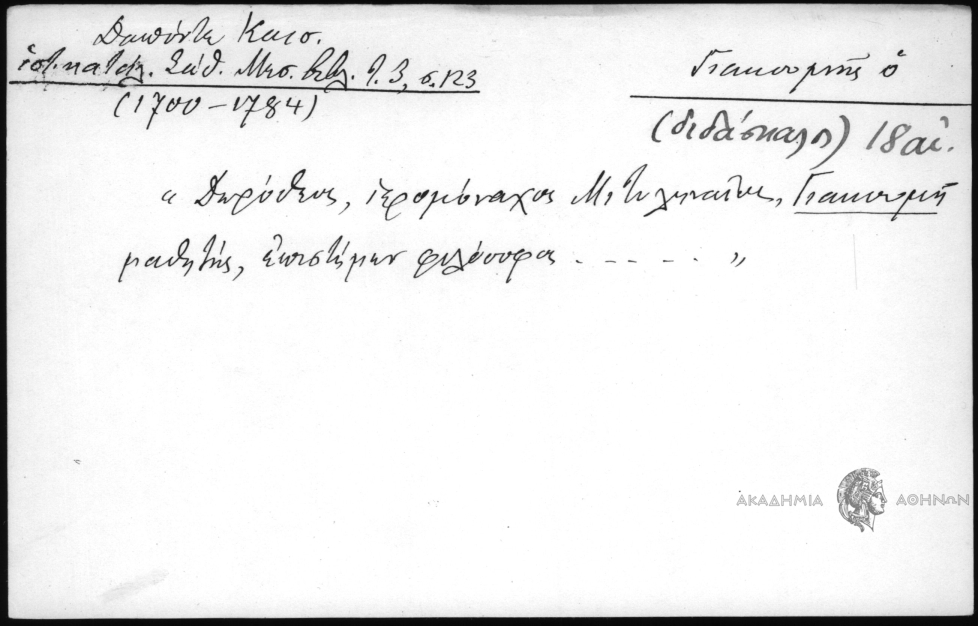 Δαπόντε Καισ.
ἱστ. κατάλ. Σάθ. Μεσ. Βιβλ. τ. 3, σ. 123
(1700-1784)
Γιακουμῆς ὁ
(διδάσκαλος) 18 αἰ.
« Δωρόθεος, ἱερομόναχος Μιτυληναῖος, Γιακουμῆ
μαθητής, ἐπιστήμων φιλόσοφος . - - - . »
ΑΚΑΔΗΜΙΑ ΑΘΗΝΩΝ